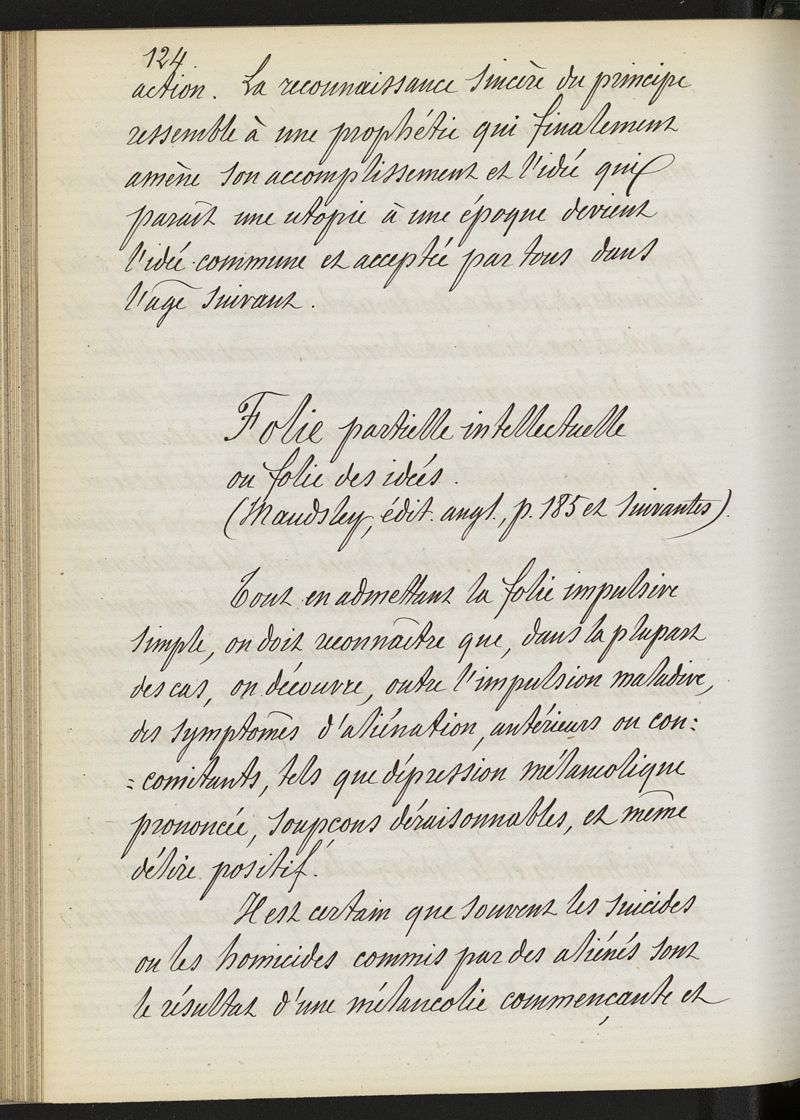 124
action. La reconnaissance sincère du principe
ressemble à une prophétie qui finalement
amène son accomplissement et l'idée qui
paraît une utopie à une époque devient
l'idée commune et acceptée par tous dans
l'âge suivant.
Folie partielle intellectuelle
ou folie des idées.
(Maudsley, édit. angl., p. 185 et suivantes).
Tout en admettant la folie impulsive
simple, on doit reconnaître que, dans la plupart
des cas, on découvre, outre l'impulsion maladive,
des symptômes d'aliénation, antérieurs ou con:
=comitants, tels que dépression mélancolique
prononcée, soupçons déraisonnables, et même
délire positif.
Il est certain que souvent les suicides
ou les homicides commis par des aliénés sont
le résultat d'une mélancolie commençante et